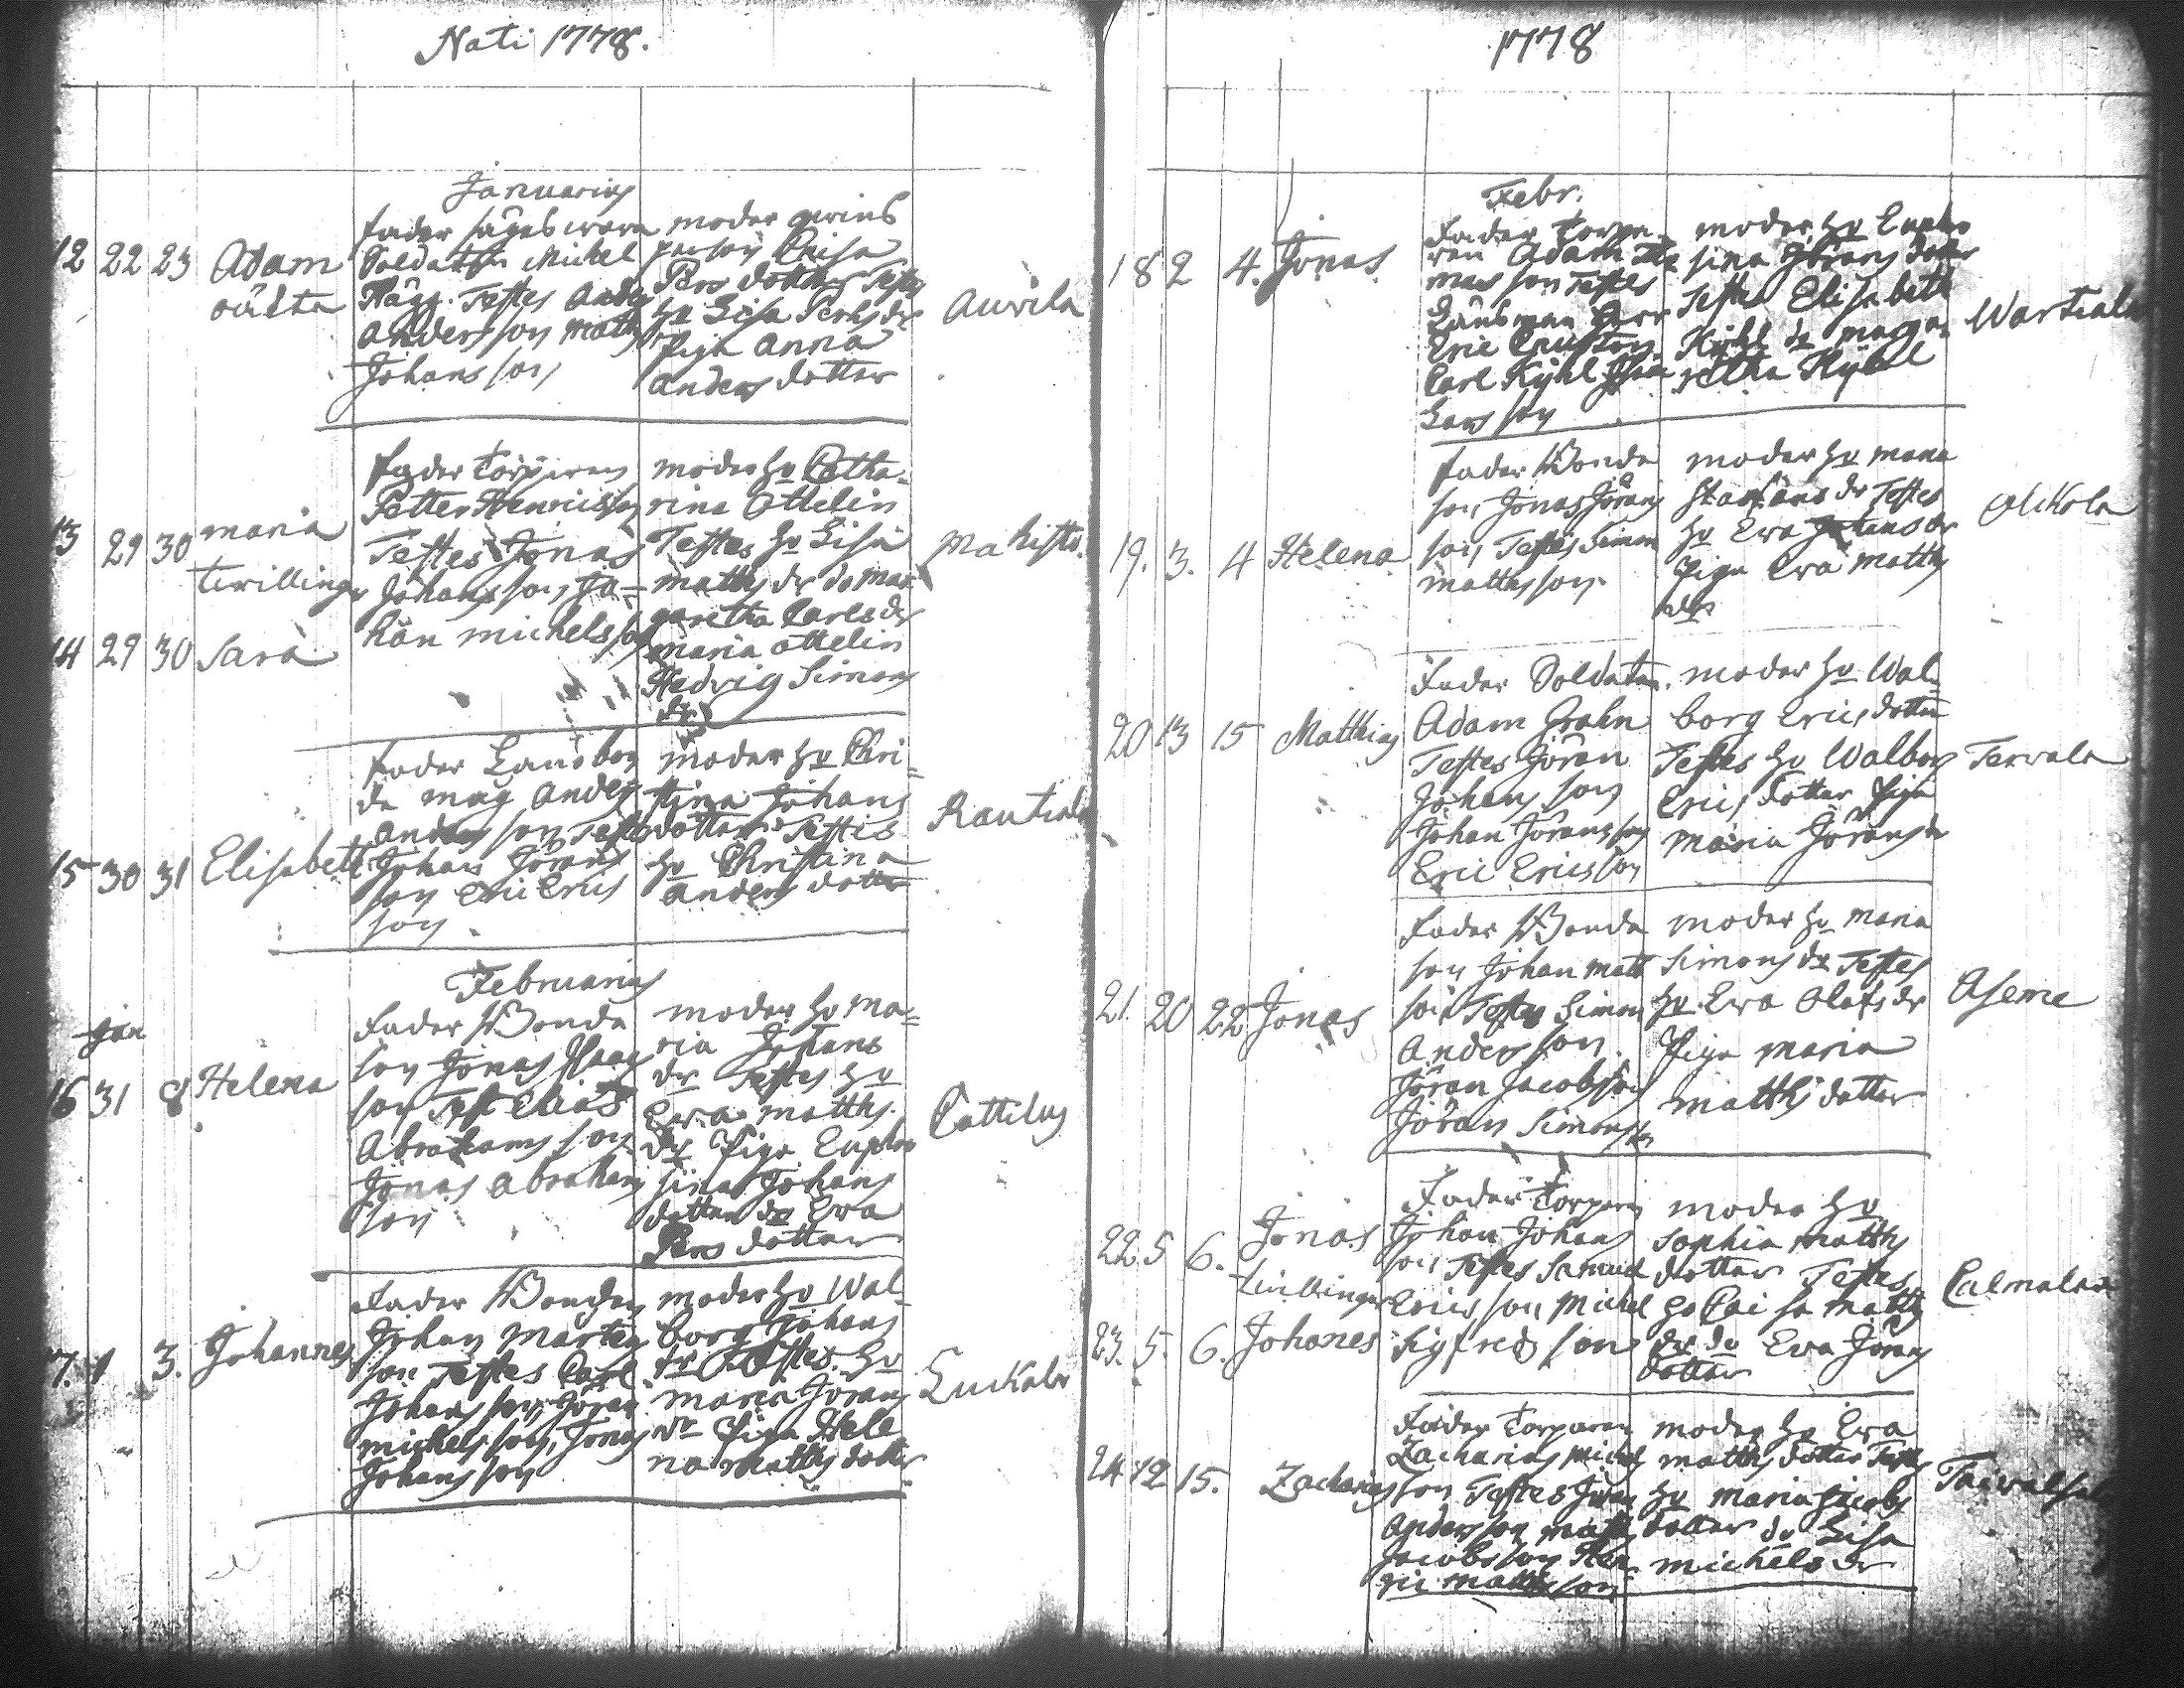 Nati 1778.
Januarius
12 22 23 Adam
oäkta
fader säges wara
Soldaten Michel
Hägg. Testes Anders
Andersson Matts
Johansson
moder
Caisa
Pers dotter Testes
Hu Lisa
Piga Anna
Anders dotter
Auvila
13 29 30 Maria
twillingar
14 29 30 Sara
fader Torparen
Petter Henricsson
Testes Jonas
Johansson Jo=
han Michelsson
moder Hu Catha=
rina Ottelin
Testes Hu Lisa
Matts dr do Mar
garetha Carls dr
Maria Ottelin
Hedvig Simons
dr
15 30 31 Elisabeth
fader Landbon
de måg Anders
Andersson Testes
Johan Jörans
son Eric Erics
son
moder Hu Chri=
stina Johans
dotter Testes
Hu Christina
Anders dotter
Rautiala
Februarius
Jan
16 31 8 Helena
fader Bonde
son Jonas Isaacs
son Test Elias
Abrahams son
Jonas Abrahams
son
moder Hu Ma=
ria Johans
dr Testes Hu
Ewa Matths
dr Piga Euphro
sina Johans
dotter do Ewa
Pers dotter
Cattilus
17. 1 3. Johannes
fader Bonden
Johan Mårtens
son Testes Carl
Johansson, Jöran
Michelsson, Jonas
Johansson
moder Hu Wal=
borg Johans
dr Testes Hu
Maria Jörans
dr Piga Hele
na Matths dotter
Luckala
1778
Febr.
18 2 4. Jonas
Fader Torpa=
ren Adam Tho
mas son Testes
Länsman Herr
Eric
Carl Kyhl
Lars son
moder Hu Euphro
sina Görans dotter
Testes Elisabeth
Kyhl do Marga=
retha Kyhl
Wartiala
19. 3. 4 Helena
fader Bonde
son Jonas Jörans
son Testes Simon
Mattsson.
moder Hu Maria
Staffans dr Testes
Hu Ewa Johans dr
Piga Ewa Matths
dr
Alkola
20 13 15 Matthias
Fader Soldaten
Adam Grahn
Testes Jöran
Johans son
Johan Jöransson
Eric Ericsson
moder Hu Wal=
borg Erics dotter
Testes Hu Walborg
Erics dotter Piga
Maria Jörans dr
Tervala
21. 20 22 Jonas
Fader Bonde
son Johan Matts
son Testes Simon
Anders son.
Jöran Jacobsson
Jöran Simonsson
moder Hu Maria
Simons dr Testes
Hu Ewa Olofs dr
Piga Maria
Matths dotter
Aseme
22. 5 6. Jonas
twillingar
23. 5. 6. Johanes
Fader Torparen
Johan Johans
son Testes Samuel
Ericsson Michel
Sigfreds son
moder Hu
Sophia Matths
dotter Testes
Hu Caisa Matths
dr do Ewa Jörans
dotter
Calmalax
24 12 15. Zacharias
Fader Torparen
Zacharias Michels
son Testes Jöran
Andersson Matts
Jacobsson Hen
ric Mattsson
moder Hu Ewa
Matths dotter Testes
Hu Maria Jacobs
dotter do Lisa
Michels dr